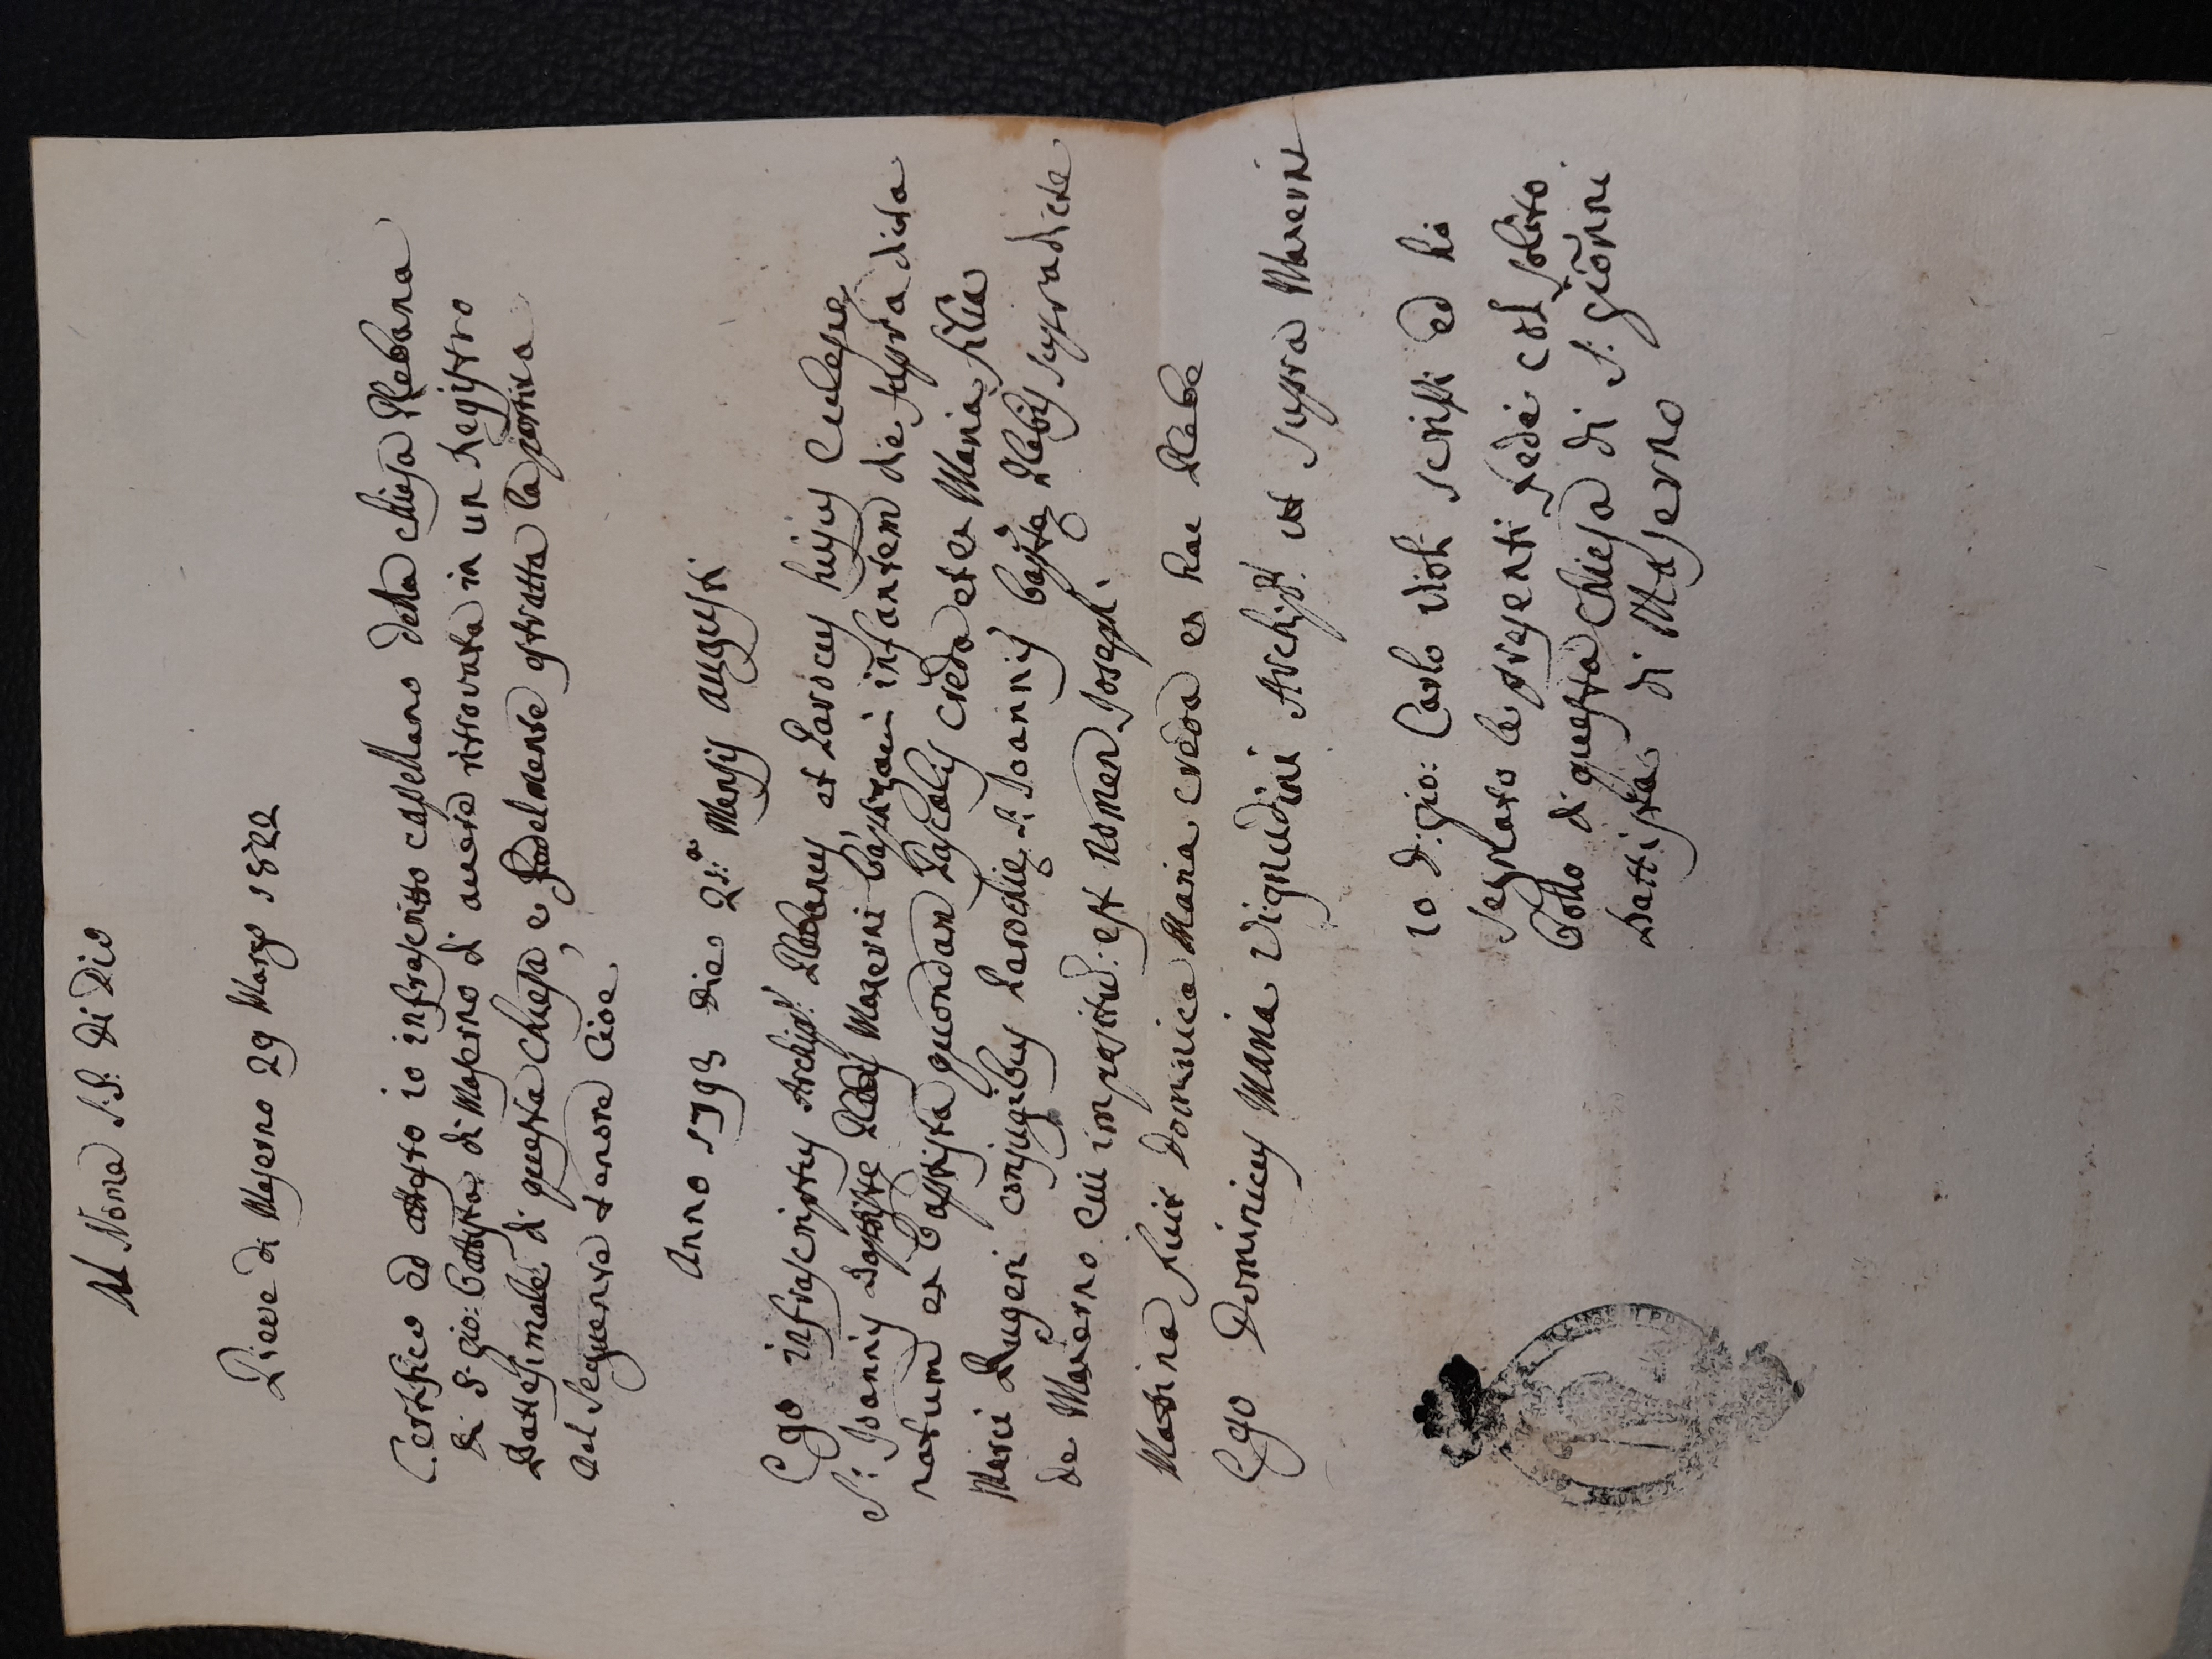 Al Nome S.S. di Dio
Pieve di Maserno 29 Marzo 1822
Certifico ed attesto io infrascritto capellano della chiesa Plebana
di S. Gio: Battista di Maserno di avere ritrovata in un Registro
Battesimale di questa Chiesa, e fedelmente estratta la partita
del seguente tenore Cioe
Anno 1793 die 21.a Mensis augusti
Ego infrascriptus Archip.r Plebanus, et Parocus hujus Eclesie
S: Joannis Baptiste Plebis Maserni baptizavi infantem die supra dicta
natum ex Baptista quondam Pascalis Credo et ex Maria filia
Marci Rugeri conjugibus Parochie S: Joannis bapte Plebis supradicte
de Maserno cui impositu: est nomen Joseph.
Matrina fuit Dominica Maria credo ex hac Plebe
Ego Dominicus Maria Vignudini Archipr. ut supra Maserni
Io D. Gio: Carlo Violi scrissi ed hò
segnato le presenti fede col solito
Bollo di questa Chiesa di S. Gioãnni
Battista di Maserno